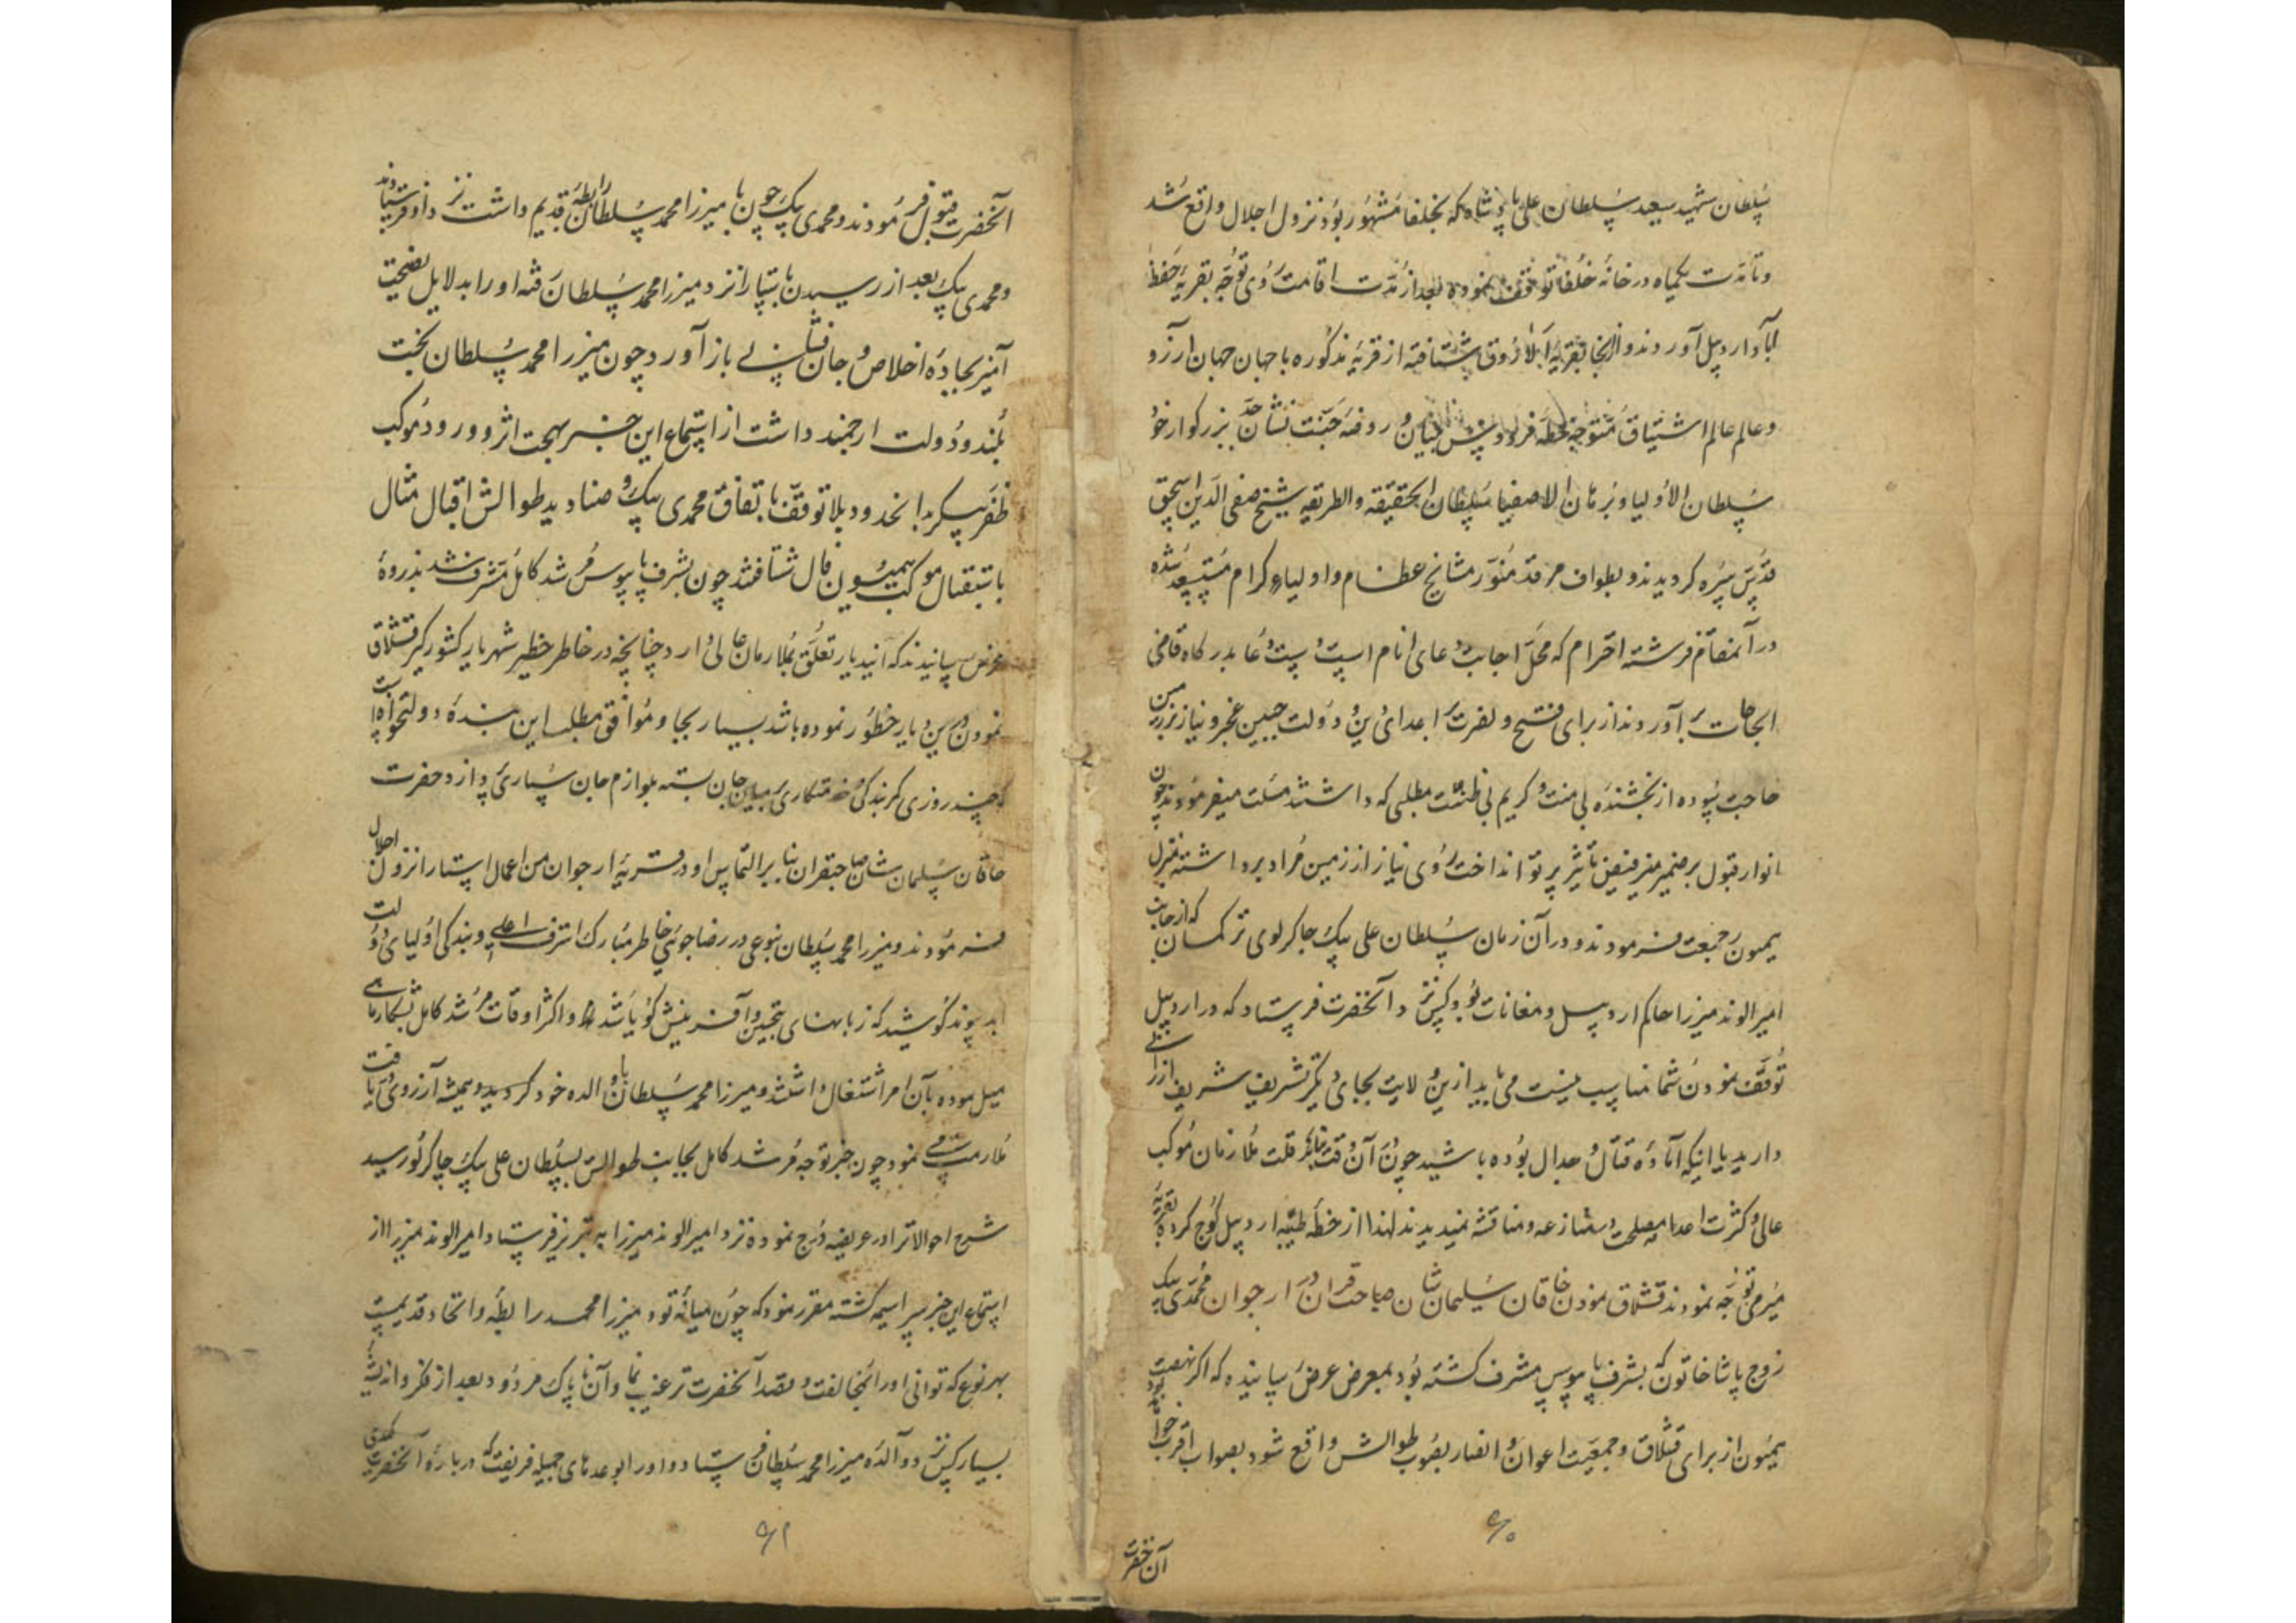 سلطان شهید سعید سلطان علی پادشاه که بخلفا مشهور بود نزول اجلال واقع شد
و تا مدت یکماه در خانه خلفا توقف نموده بعد از مدت اقامت روی توجه بقریه حفظ
آباد اردبیل آوردند و از آنجا بقریه شتافته از قریه مذکوره با جهان جهان آرزو
و عالم عالم اشتیاق متوجه خطه فردوس و روضه جنت نشان جد بزرگوار خود
سلطان الاولیا و برهان الاصفیا سلطان الحقیقه والطریقه شیخ صفی الدین اسحق
قدس سره کردیدند و بطواف مرقد منور مشایخ عظام و اولیاء کرام مستسعد شده
در آن مقام فرشته احترام که محل اجابت دعای انام است دست دعا بدرکاه قاضی
الحاجات برآوردند از برای فتح و نصرت بر اعدای دین و دولت جبین عجز و نیاز بر زمین
حاجت سوده از بخشنده بی منت و کریم بی ظنت مطلبی که داشتند مسئلت میفرمودند چون
انوار قبول بر ضمیر منیر فیض تأثیر پرتو انداخت روی نیاز از زمین مراد برداشته بمنزل
میمون رجعت فرمودند و در آن زمان سلطان علی بیک چاکرلوی ترکمان که از جانب
امیر الوند میرزا حاکم اردبیل و مغانات بود کس نزد آنحضرت فرستاد که در اردبیل
توقف نمودن شما مناسب نیست می باید ازین ولایت بجای دیکر تشریف شریف ارزانی
دارید یا اینکه آماده قتال و جدال بوده باشید چون در آن وقت بنابر قلت ملازمان موکب
عالی و کثرت اعدا مصلحت در منازعه و مناقشه ندیدند لهذا از خطه طیبه اردبیل کوچ کرده بقریه
میرمی توجه نمودند قشلاق نمودن خاقان سلیمان شان صاحبقران در ارجوان محمدی بیک
زوج پاشا خاتون که بشرف پابوس مشرف کشته بود بمعرض عرض رسانیده که اکر نهضت
میمون از برای قشلاق و جمعیت اعوان و انصار بصوب طوالش واقع شود بصواب اقرب خواهد بود
آن حضرت
۵۰
آنحضرت قبول فرمودند و محمدی بیک چون با میرزا محمد سلطان رابطه قدیم داشت نزد او فرستادند
و محمدی بیک بعد از رسیدن بآستارا نزد میرزا محمد سلطان رفته او را بدلایل نصیحت
آمیز بجاده اخلاص و جان فشانی باز آورد چون میرزا محمد سلطان بخت
بلند و دولت ارجمند داشت از استماع این خبر بهجت اثر و ورود موکب
ظفر پیکر بدانحدود بلا توقف باتفاق محمدی بیک و صنادید طوالش اقبال مثال
باستقبال موکب همیون فال شتافتند چون بشرف پابوس مرشد کامل مشرف شدند بذروه
عرض رسانیدند که این دیار تعلق بملازمان عالی دارد چنانچه در خاطر خطیر شهریار کشور کیر قشلاق
نمودن درین دیار خطور نموده باشد بسیار بجا و موافق مطلب این بنده دولتخواه است
که چند روزی کمر بندکی و خدمتکاری بر میان جان بسته بلوازم جان سپاری پردازد حضرت
خاقان سلیمان شان صاحبقران بنابر التماس او در قریه ارجوان من اعمال استارا نزول اجلال
فرمودند و میرزا محمد سلطان بنوعی در رضاجوئی خاطر مبارک اشرف اعلی و بندکی اولیای دولت
ابد پیوند کوشید که زبانهای بتحسین و آفرینش کویا شد و اکثر اوقات مرشد کامل بشکار ماهی
میل نموده بآن امر اشتغال داشتند و میرزا محمد سلطان با والده خود کردید و همیشه آرزوی دریافت
ملازمت می نمود چون خبر توجه مرشد کامل بجانب طوالش بسلطان علی بیک چاکرلو رسید
شرح احوالات را در عریضه درج نموده نزد امیر الوند میرزا به تبریز فرستاد امیر الوند میرزا از
استماع این خبر سراسیمه کشته مقرر نمود که چون میانه تو و میرزا محمد رابطه و اتحاد قدیمست
بهر نوع که توانی او را بمخالفت و بقصد آنحضرت ترغیب نما و آن ناپاک مردود بعد از فکر و اندیشه
بسیار کس نزد والده میرزا محمد سلطان فرستاد و او را بوعدهای جمیله فریفت که درباره آنحضرت
۵۱